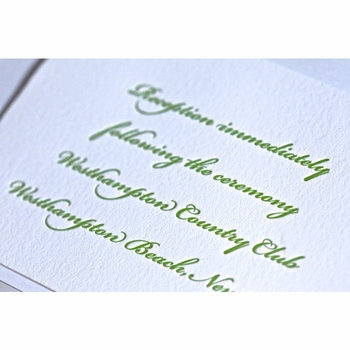 Reception immediately
following the ceremony
Westhampton Country Club
Westhampton Beach, New